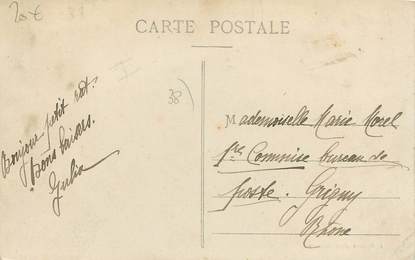 20 €
CARTE POSTALE
38
Bonjour petit rat.
Bons baisers.
Julia
Mademoiselle Marie Morel
Commise bureau de
poste. Grigny
Rhône